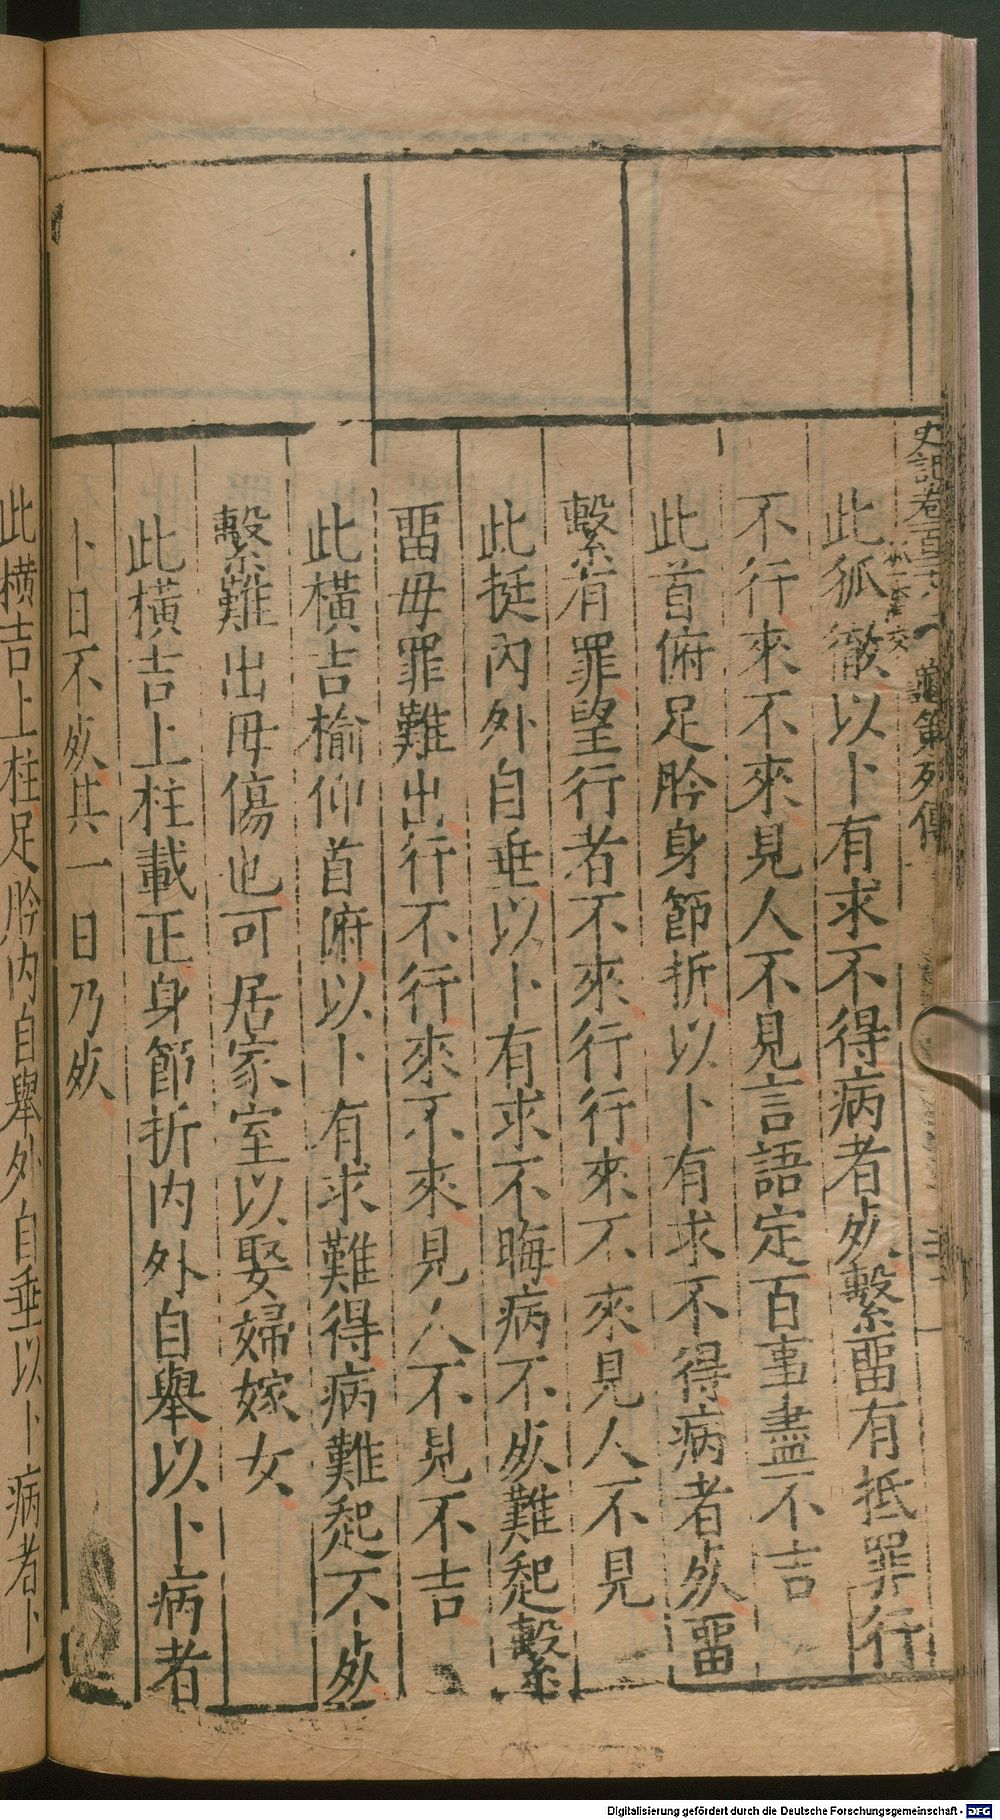 史記卷一百二十八　龜策列傳
此狐徹以卜有求不得病者𣦸繫畱有抵罪行
不行來不來見人不見言語定百事盡不言
此首俯足肣身節折以卜有求不得病者𣦸畱
繫有罪望行者不來行行來不來見人不見
此挺內外自垂以卜有求不晦病不𣦸難起繫
畱毋罪難出行不行來不來見人不見不吉
此橫吉榆仰首俯以卜有求難得病難起不𣦸
繫難出毋傷也可居家室以娶婦嫁女
此橫吉上柱載正身節折內外自舉以卜病者
卜日不𣦸其一日乃𣦸
此橫吉上柱足肣內自舉外自垂以卜病者卜
Digitalisierung gefördert durch die Deutsche Forschungsgemeinschaft - DFG